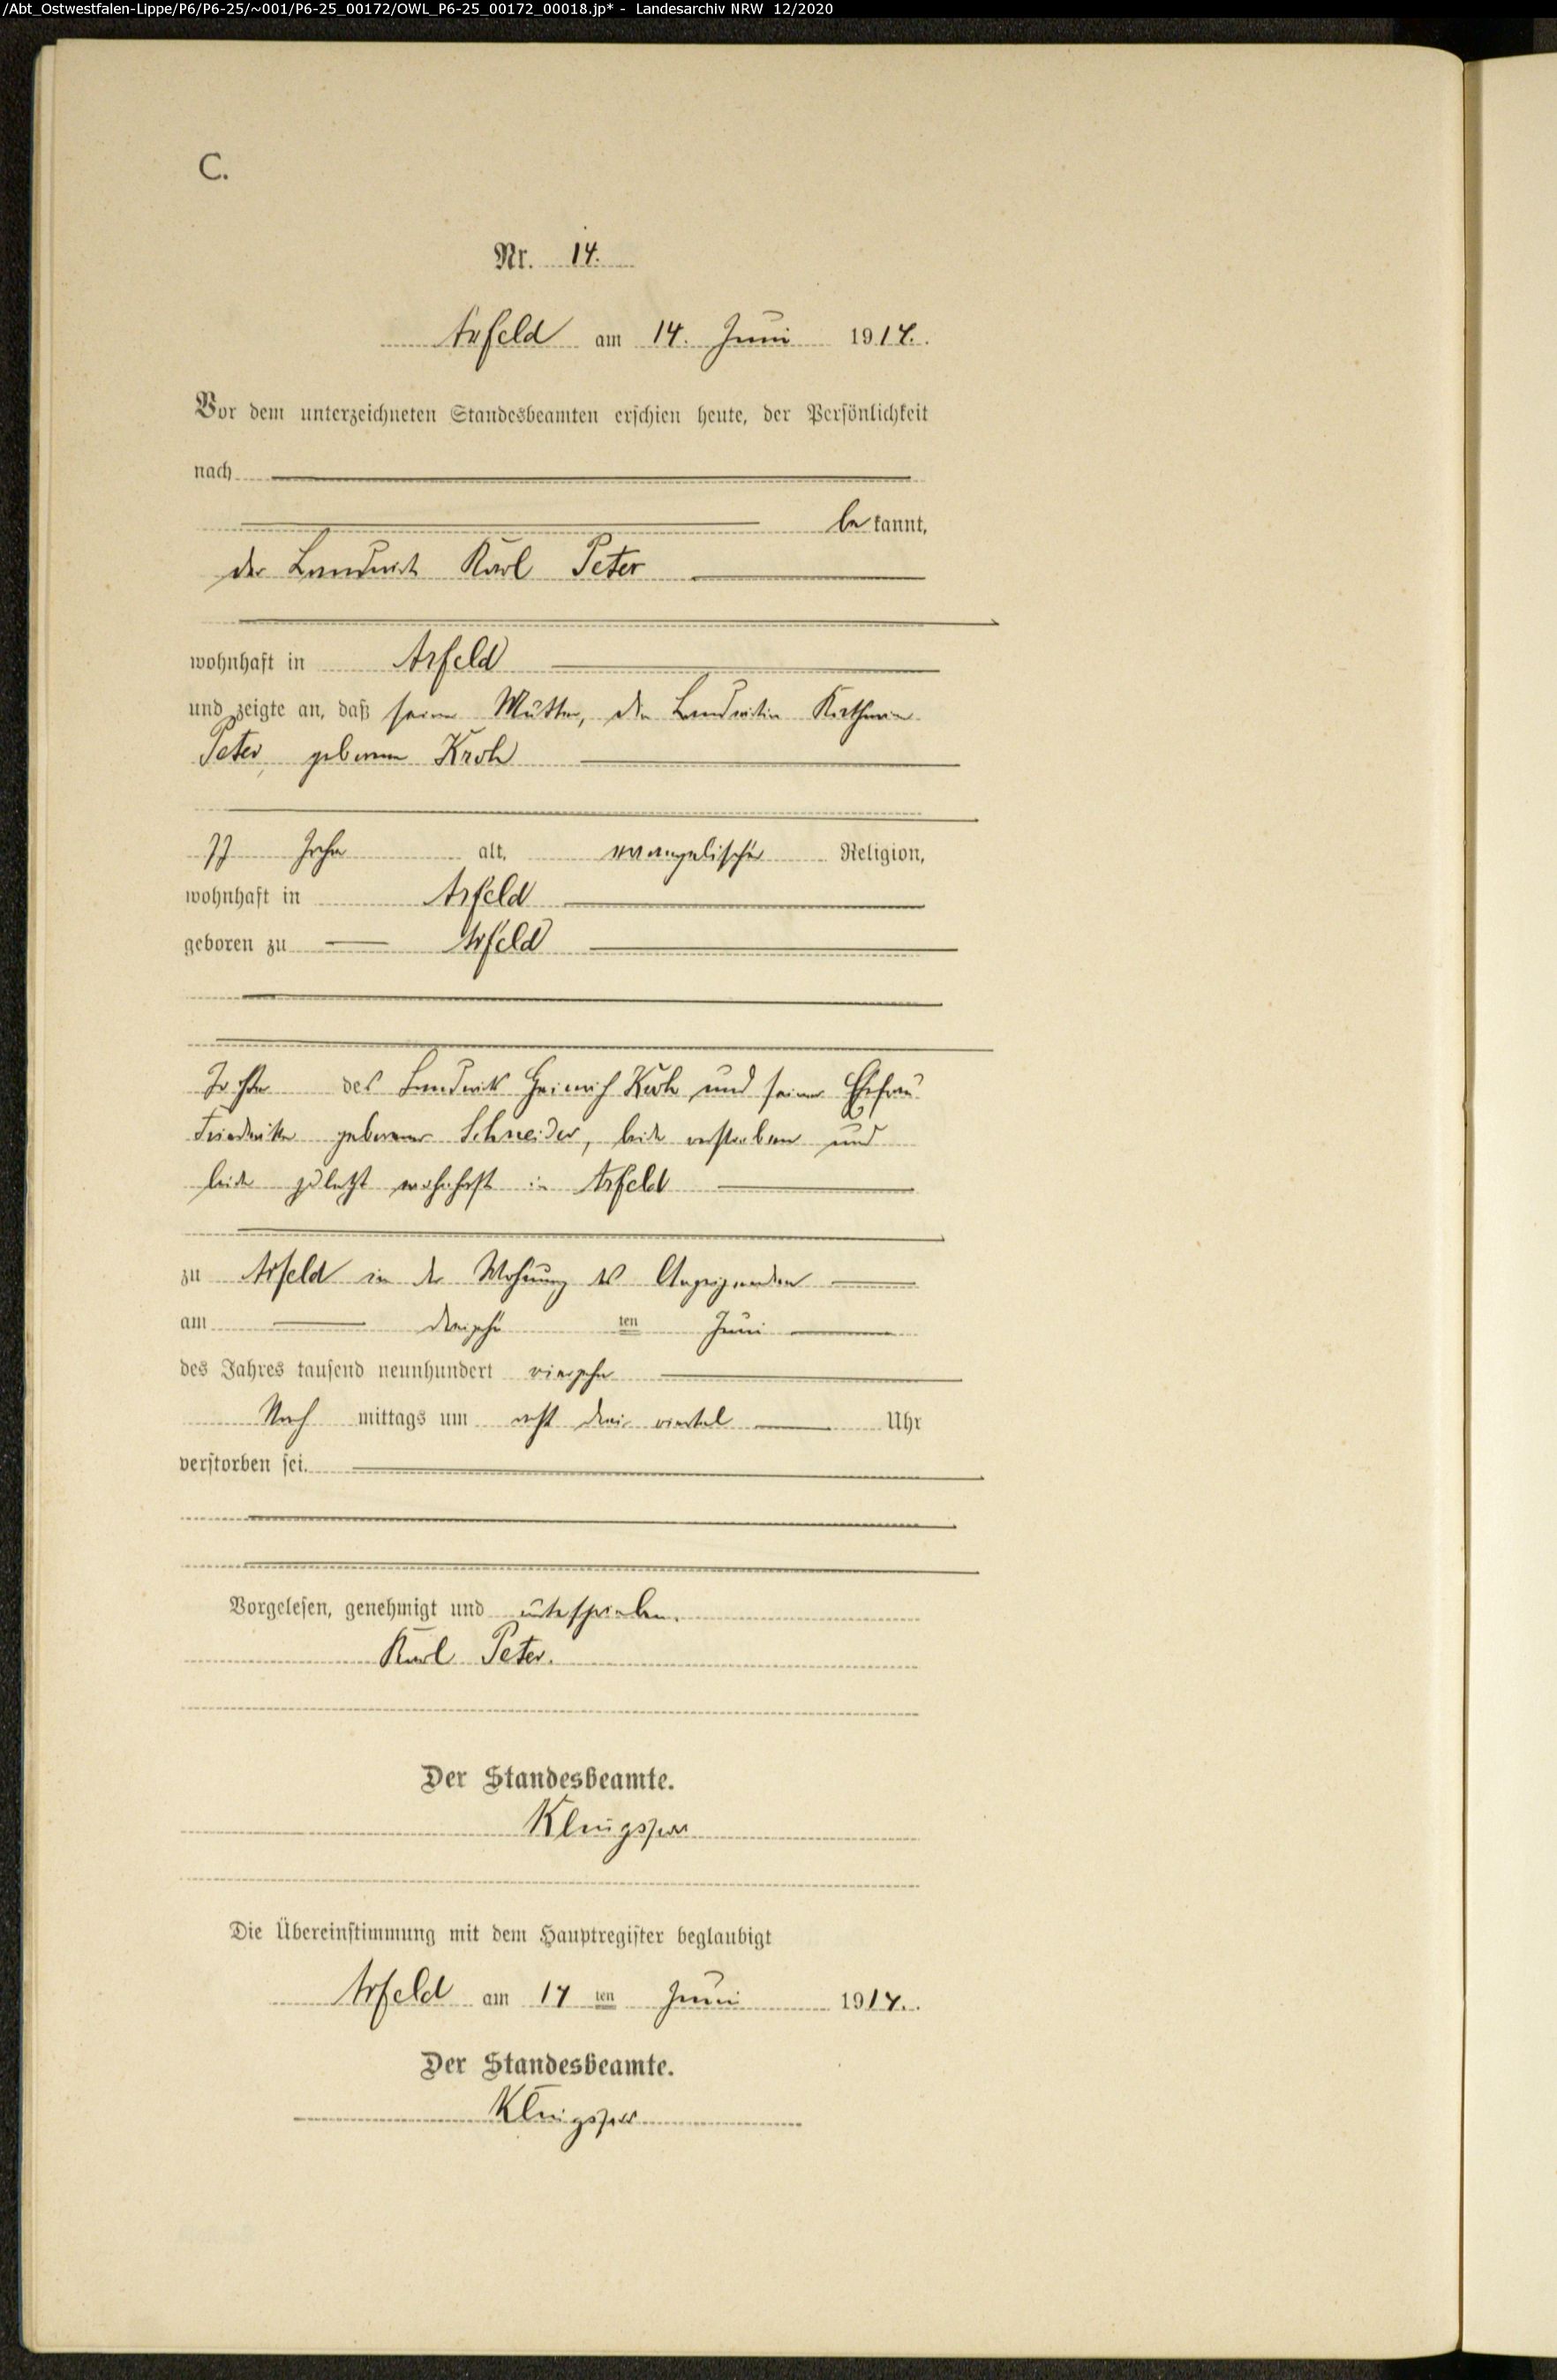 /Abt_Ostwestfalen-Lippe/P6/P6-25/~001/P6-25_00172/OWL_P6-25_00172_00018.jp* - Landesarchiv NRW 12/2020
C.
Nr. 14.
Arfeld am 14. Juni 1914.
Vor dem unterzeichneten Standesbeamten erschien heute, der Persönlichkeit
nach
be kannt,
der Landwirt Karl Peter
wohnhaft in Arfeld
und zeigte an, daß seine Mutter, die Landwirtin Katharine
Peter, geborene Kroh
77 Jahre alt, evangelischer Religion,
wohnhaft in Arfeld
geboren zu Arfeld
Tochter des Landwirts Heinrich Kroh und seiner Ehefrau
Friederike geborener Schneider, beide verstorben und
beide zuletzt wohnhaft in Arfeld
zu Arfeld in der Wohnung des Anzeigenden
am dreizehn ten Juni
des Jahres tausend neunhundert vierzehn
Nach mittags um acht drei viertel Uhr
verstorben sei.
Vorgelesen, genehmigt und unterschrieben.
Karl Peter.
Der Standesbeamte.
Klingspor
Die Übereinstimmung mit dem Hauptregister beglaubigt
Arfeld am 14 ten Juni 1914.
Der Standesbeamte.
Klingspor